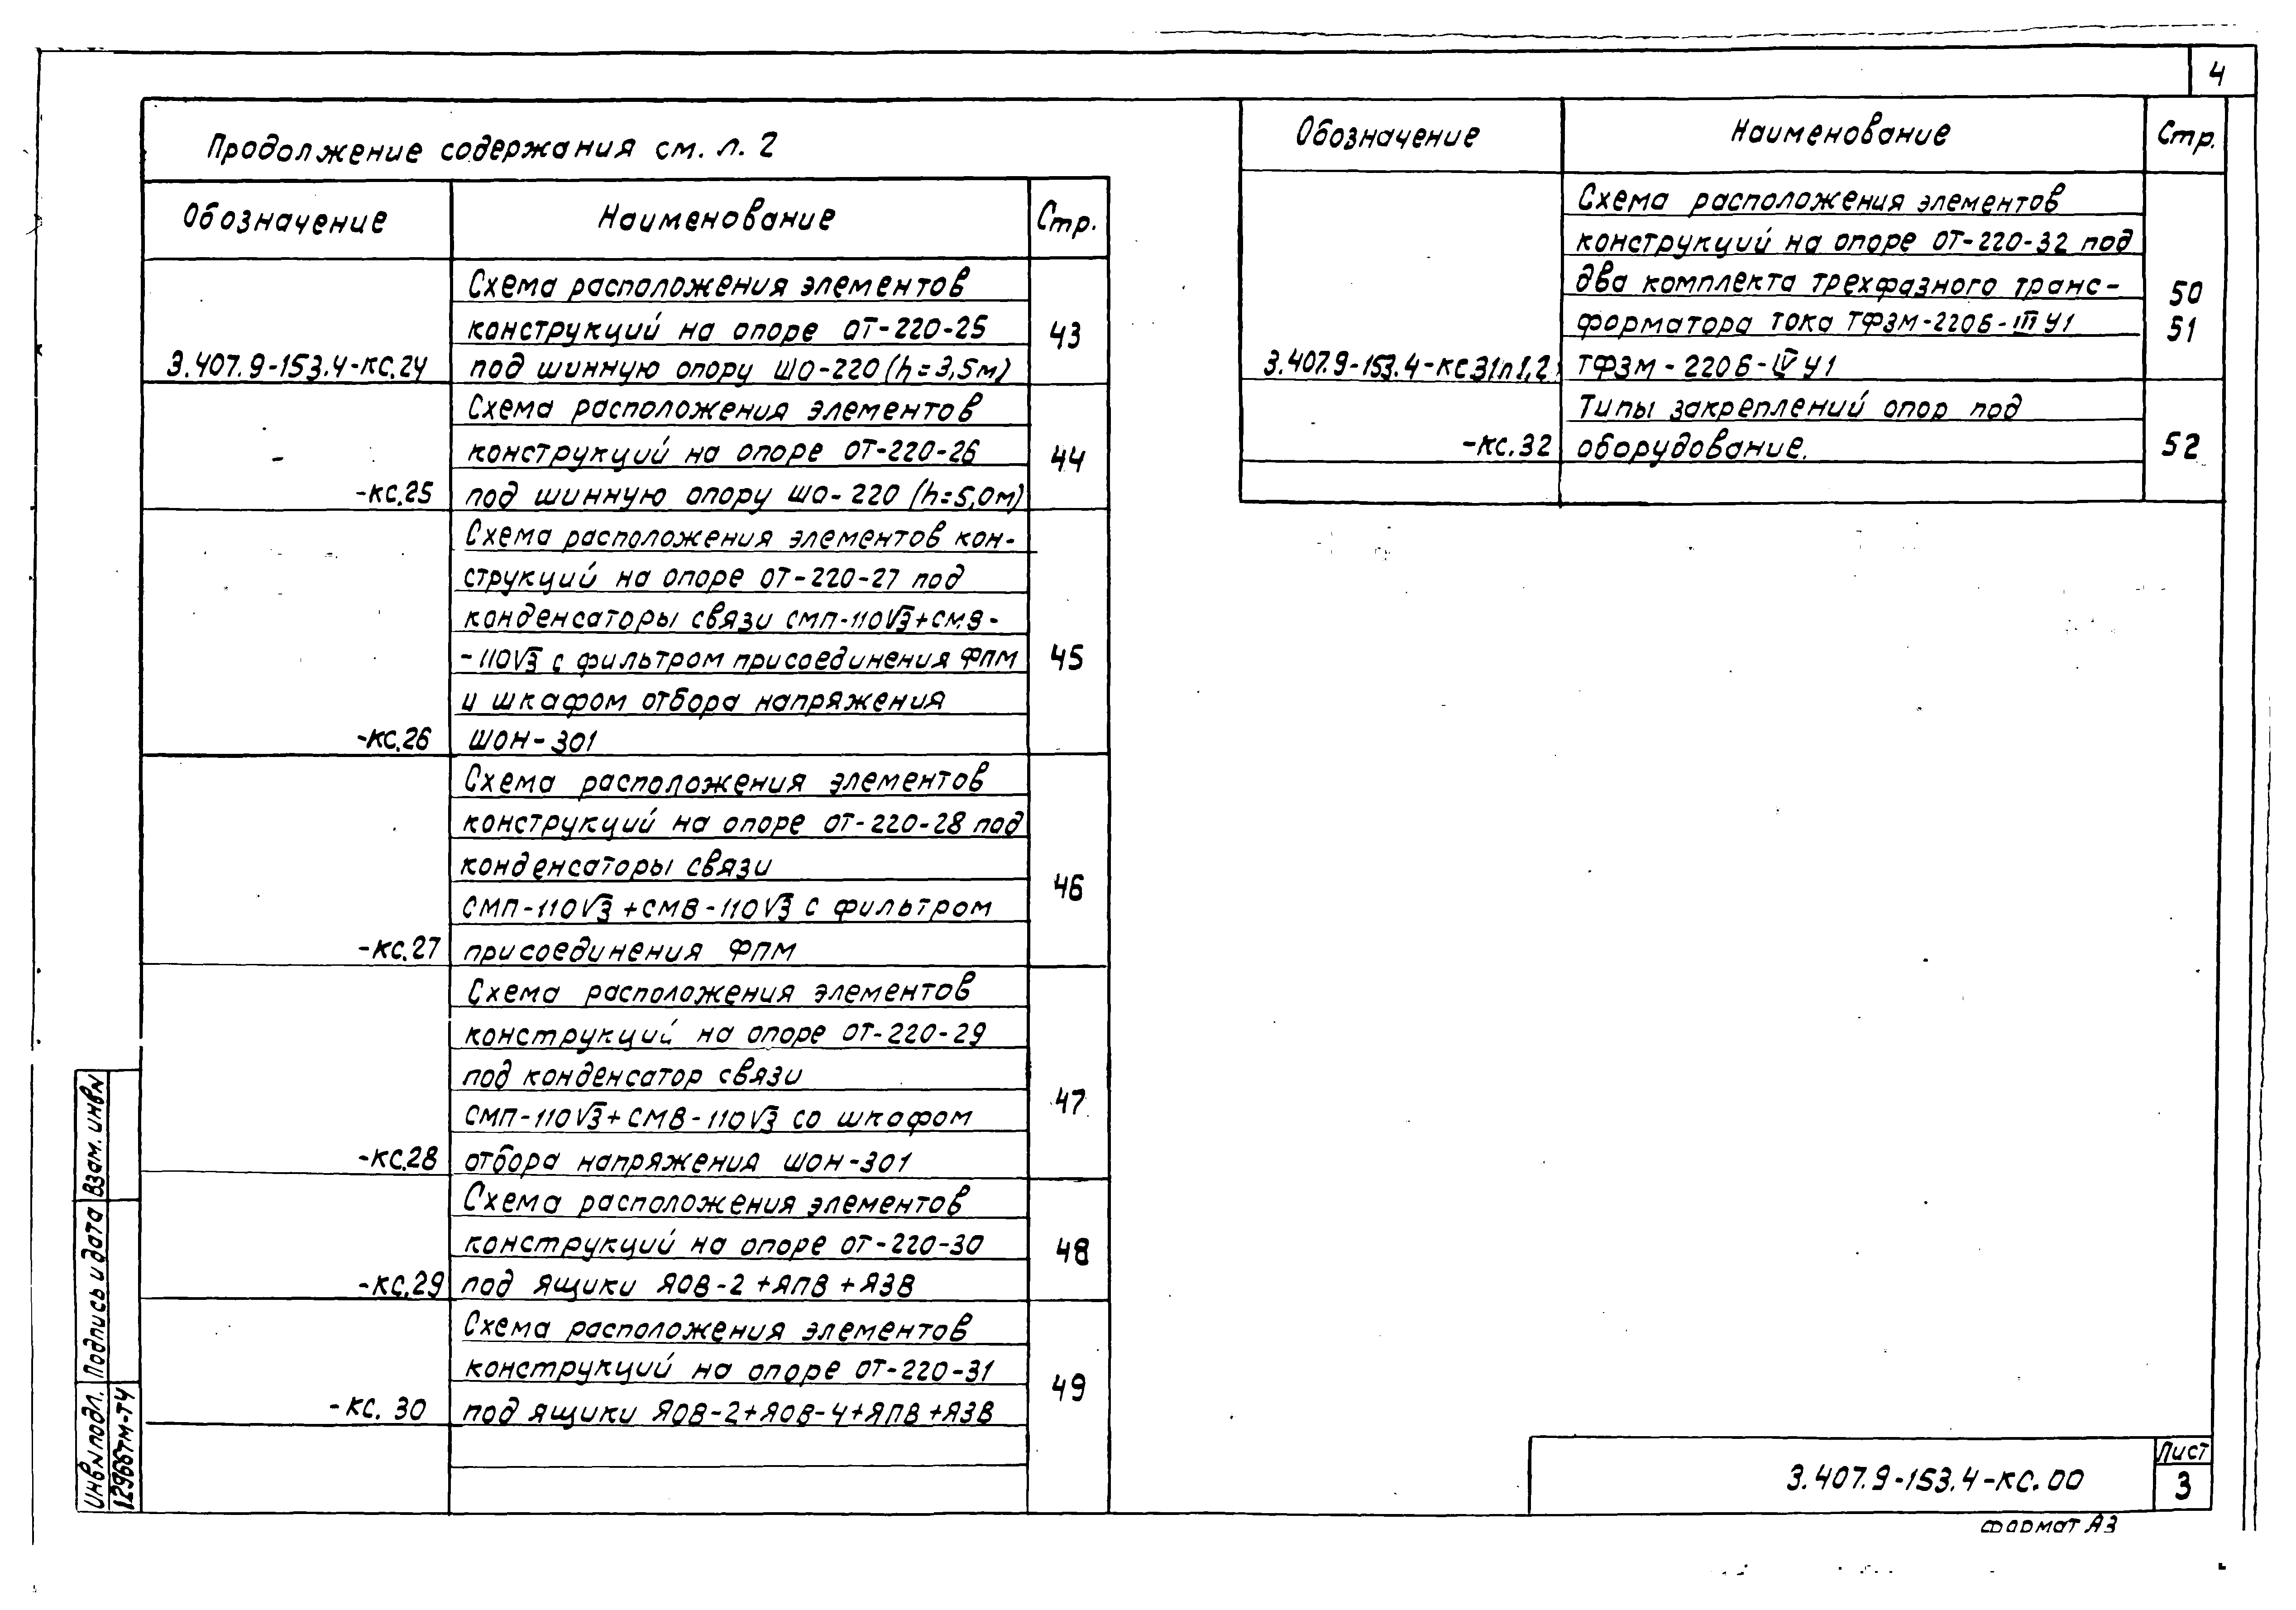 4
Продолжение содержания см. л. 2
Обозначение Наименование Стр.
Схема расположения элементов
конструкций на опоре ОТ-220-25 43
3.407.9-153.4-КС.24 под шинную опору ШО-220 (h=3,5м)
Схема расположения элементов
конструкций на опоре ОТ-220-26 44
-КС.25 под шинную опору ШО-220 (h=5,0м)
Схема расположения элементов кон-
струкций на опоре ОТ-220-27 под
конденсаторы связи СМП-110√3+СМВ-
-110√3 с фильтром присоединения ФПМ 45
и шкафом отбора напряжения
-КС.26 ШОН-301
Схема расположения элементов
конструкций на опоре ОТ-220-28 под
конденсаторы связи 46
СМП-110√3+СМВ-110√3 с фильтром
-КС.27 присоединения ФПМ
Схема расположения элементов
конструкций на опоре ОТ-220-29
под конденсатор связи 47
СМП-110√3+СМВ-110√3 со шкафом
-КС.28 отбора напряжения ШОН-301
Схема расположения элементов
конструкций на опоре ОТ-220-30 48
-КС.29 под ящики ЯОВ-2+ЯПВ+ЯЗВ
Схема расположения элементов
конструкций на опоре ОТ-220-31 49
-КС. 30 под ящики ЯОВ-2+ЯОВ-4+ЯПВ+ЯЗВ
Обозначение Наименование Стр.
Схема расположения элементов
конструкций на опоре ОТ-220-32 под
два комплекта трехфазного транс- 50
форматора тока ТФЗМ-220Б-III У1 51
3.407.9-153.4-КС31л1,2 ТФЗМ-220Б-IV У1
Типы закреплений опор под
-КС.32 оборудование. 52
Взам. инв№
Подпись и дата
Инв№ подл.
12966ТМ-Т4
3.407.9-153.4-КС.00
Лист
3
Формат А3